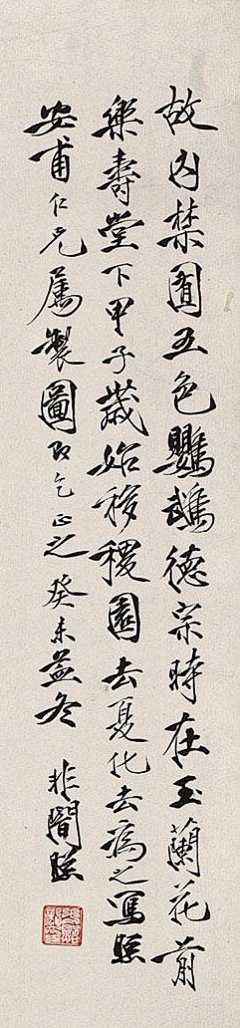 故内禁園五色鸚鵡德宗時在玉蘭花前
樂壽堂下甲子歲始移稷園去夏化去為之寫照
安甫仁兄屬製圖即乞正之癸未孟冬 非闇照